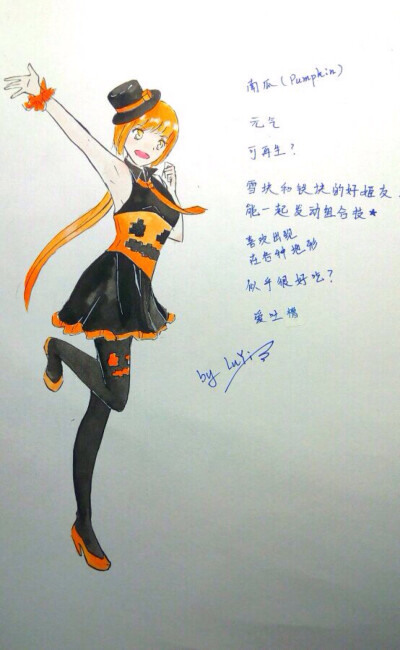 南瓜（Pumpkin）
元气
可再生？
雪块和铁块的好姬友，
能一起发动组合技★
喜欢出现
在各种地形
似乎很好吃？
爱吐槽
by LuYi